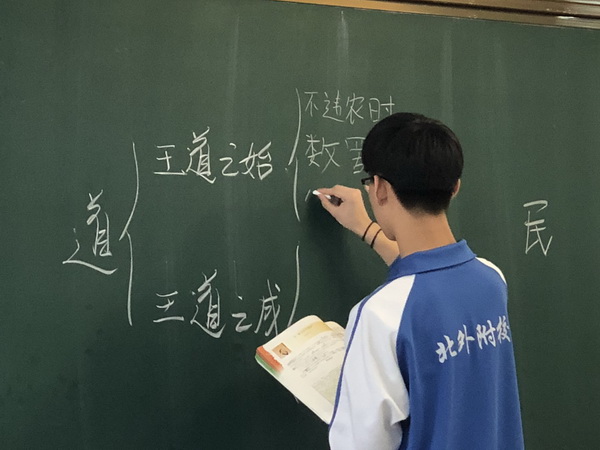 不违农时
数罟
王道之始
道
民
王道之成
北外附校